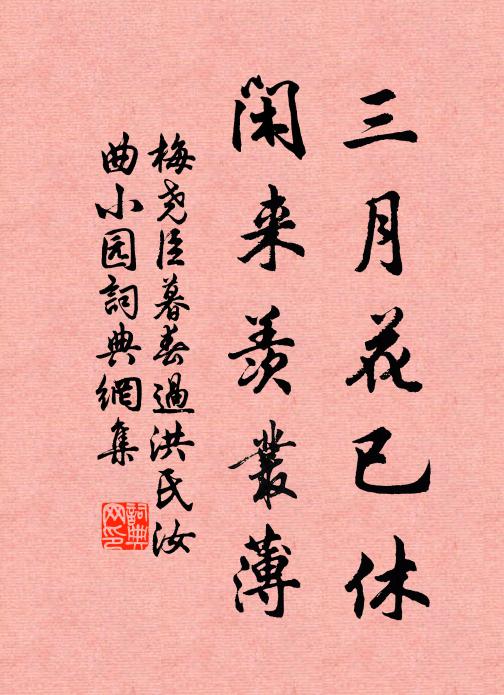 三月花已休
闲来羡丛薄
梅尧臣暮春過洪氏汝
曲小园詞典網集
詞典网印